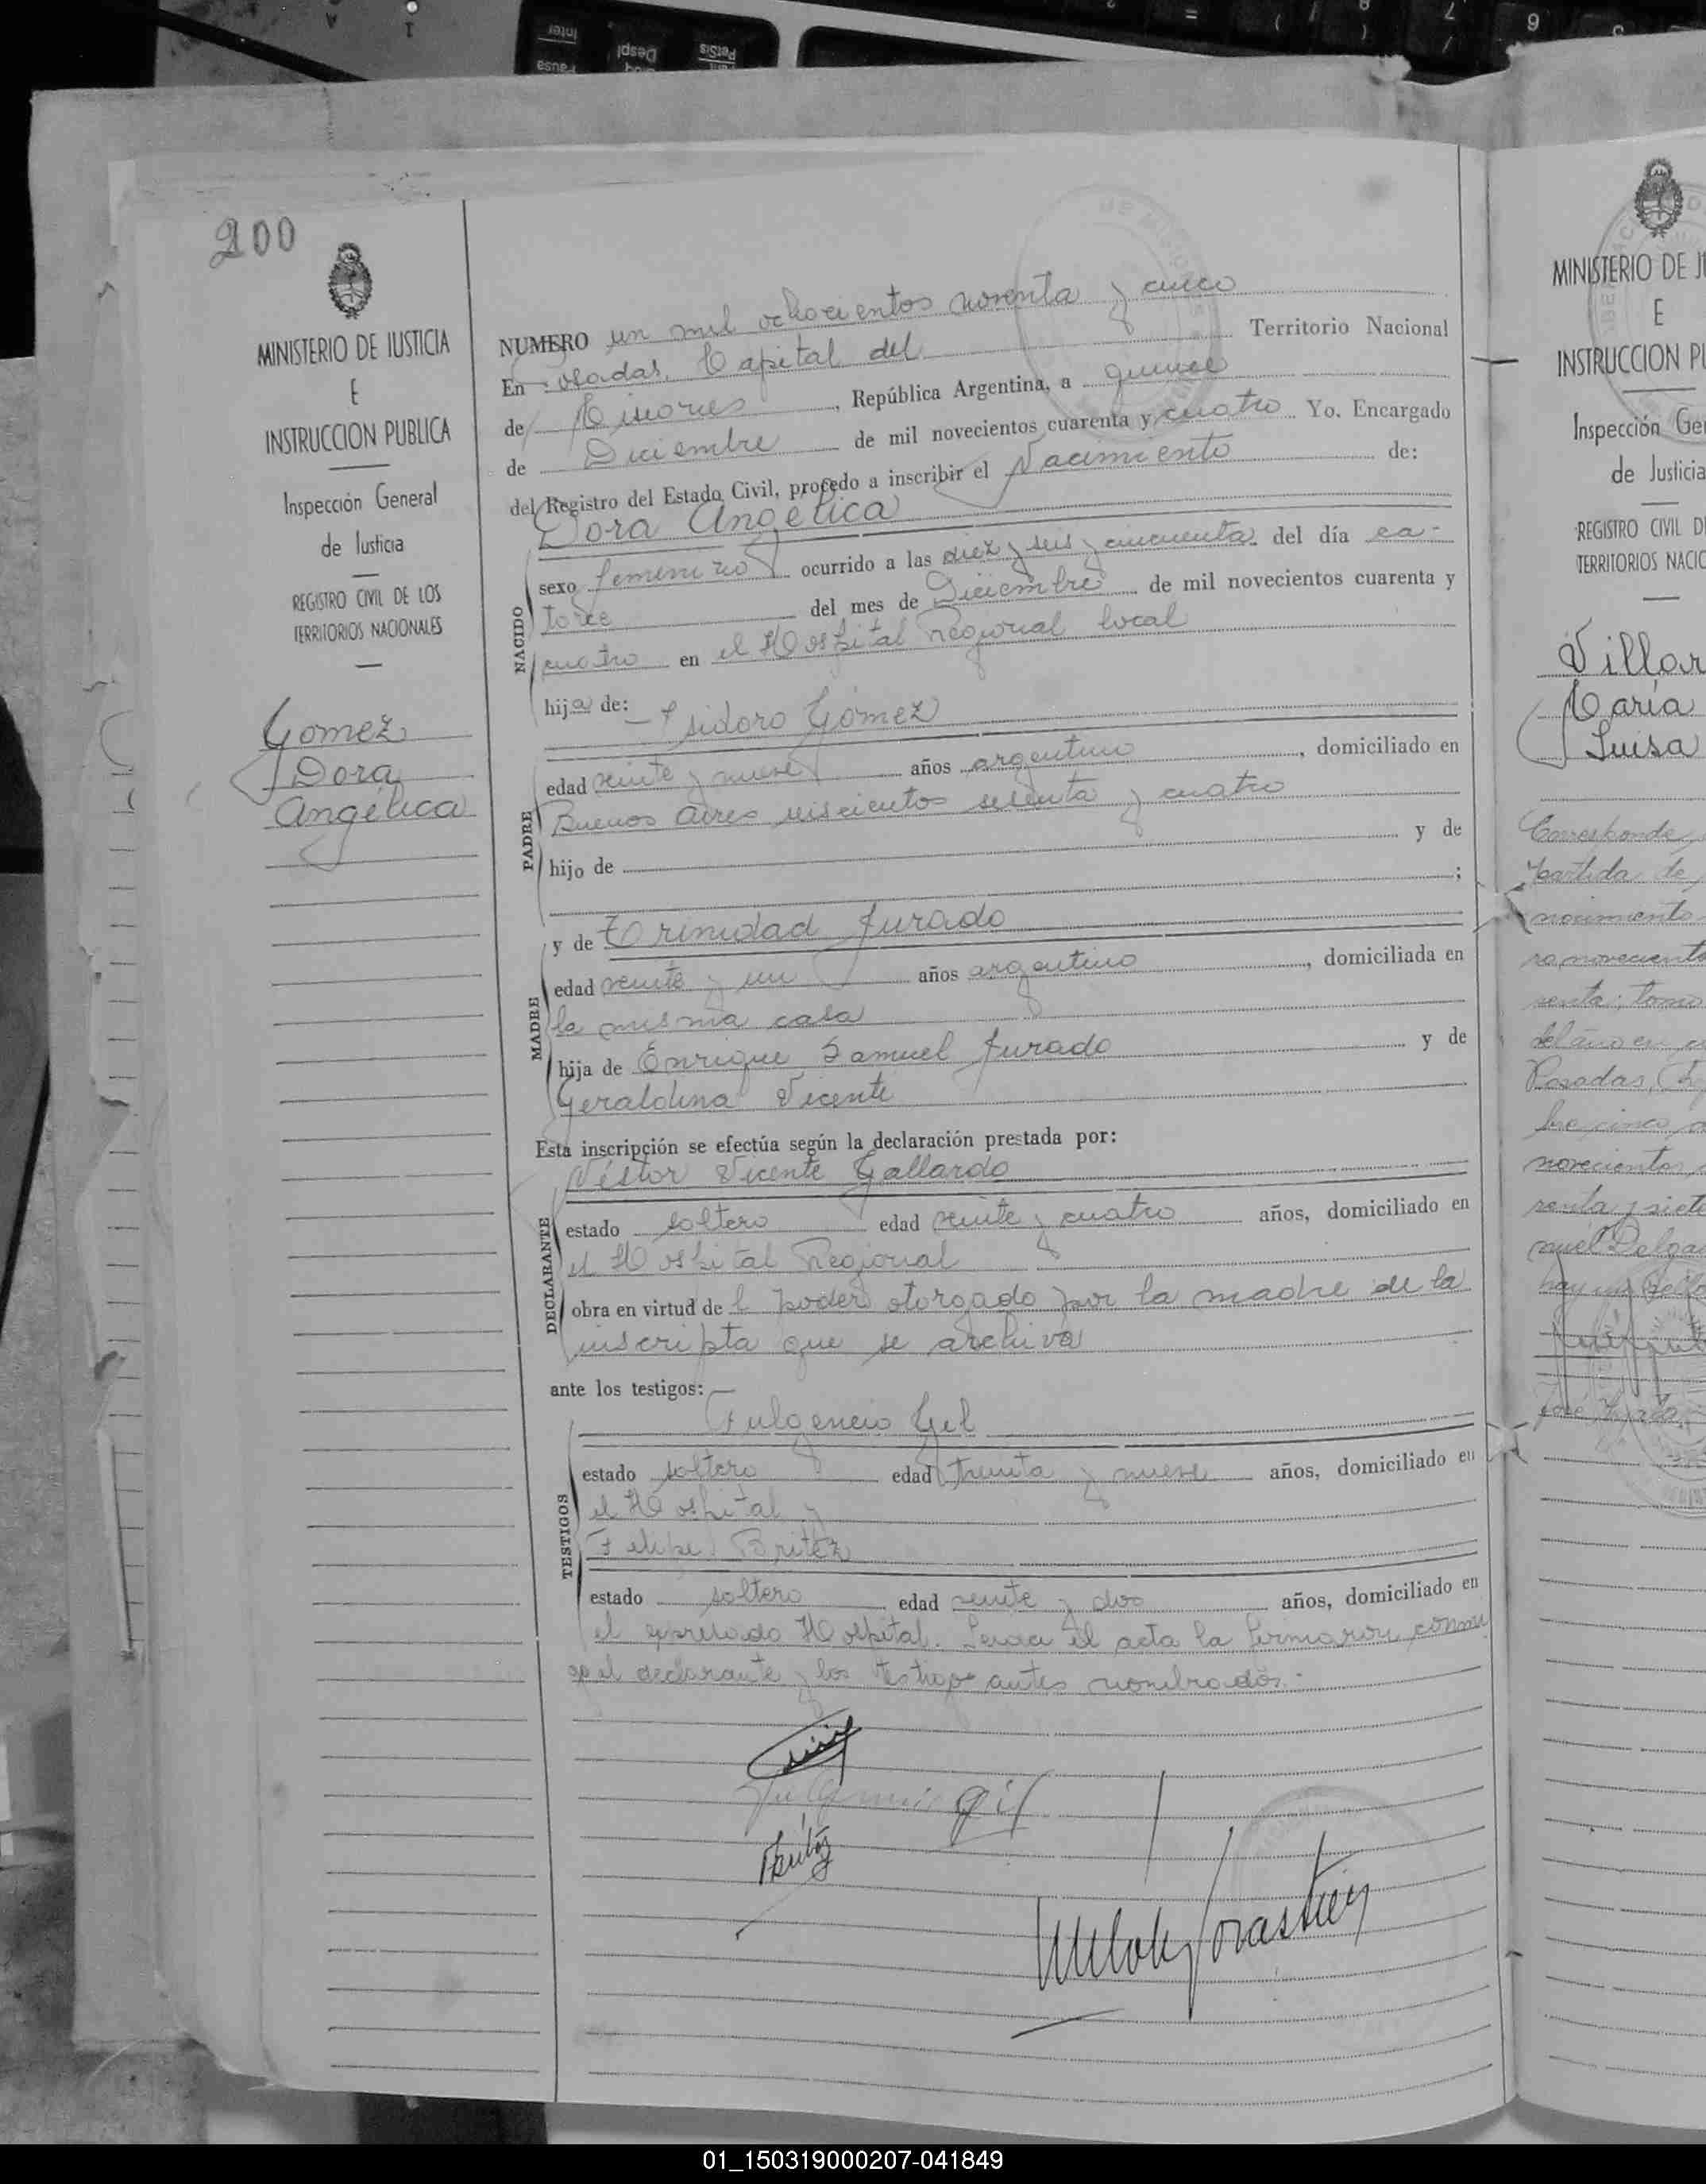 200
MINISTERIO DE JUSTICIA
E
INSTRUCCION PUBLICA
Inspección General
de Justicia
REGISTRO CIVIL DE LOS
TERRITORIOS NACIONALES
Gomez
Dora
Angélica
NUMERO un mil ochocientos noventa y cinco
En Posadas, Capital del Territorio Nacional
de Misiones, República Argentina, a quince
de Diciembre de mil novecientos cuarenta y cuatro Yo, Encargado
del Registro del Estado Civil, procedo a inscribir el Nacimiento de:
Dora Angélica
NACIDO
sexo femenino ocurrido a las diez y seis y cincuenta del día ca-
torce del mes de Diciembre de mil novecientos cuarenta y
cuatro en el Hospital Regional local
hija de: Isidoro Gómez
PADRE
edad veinte y nueve años argentino, domiciliado en
Buenos Aires seiscientos sesenta y cuatro
hijo de y de
;
MADRE
y de Trinidad Jurado
edad veinte y un años argentino, domiciliada en
la misma casa
hija de Enrique Samuel Jurado y de
Geraldina Vicente
Esta inscripción se efectúa según la declaración prestada por:
Néstor Vicente Gallardo
DECLARANTE
estado soltero edad veinte y cuatro años, domiciliado en
el Hospital Regional
obra en virtud de l poder otorgado por la madre de la
inscripta que se archiva
ante los testigos:
Fulgencio Gil
TESTIGOS
estado soltero edad treinta y nueve años, domiciliado en
el Hospital y
Felipe Britez
estado soltero edad veinte y dos años, domiciliado en
el expresado Hospital. Leida el acta la firmaron conmi
go el declarante y los testigos antes nombrados.
Fulgencio Gil
Britez
MINISTERIO DE JU
E
INSTRUCCION PU
Inspección Gen
de Justicia
REGISTRO CIVIL DE
TERRITORIOS NACIO
Villar
María
Luisa
Corresponde
partida de
novecientos
Posadas,
01_150319000207-041849